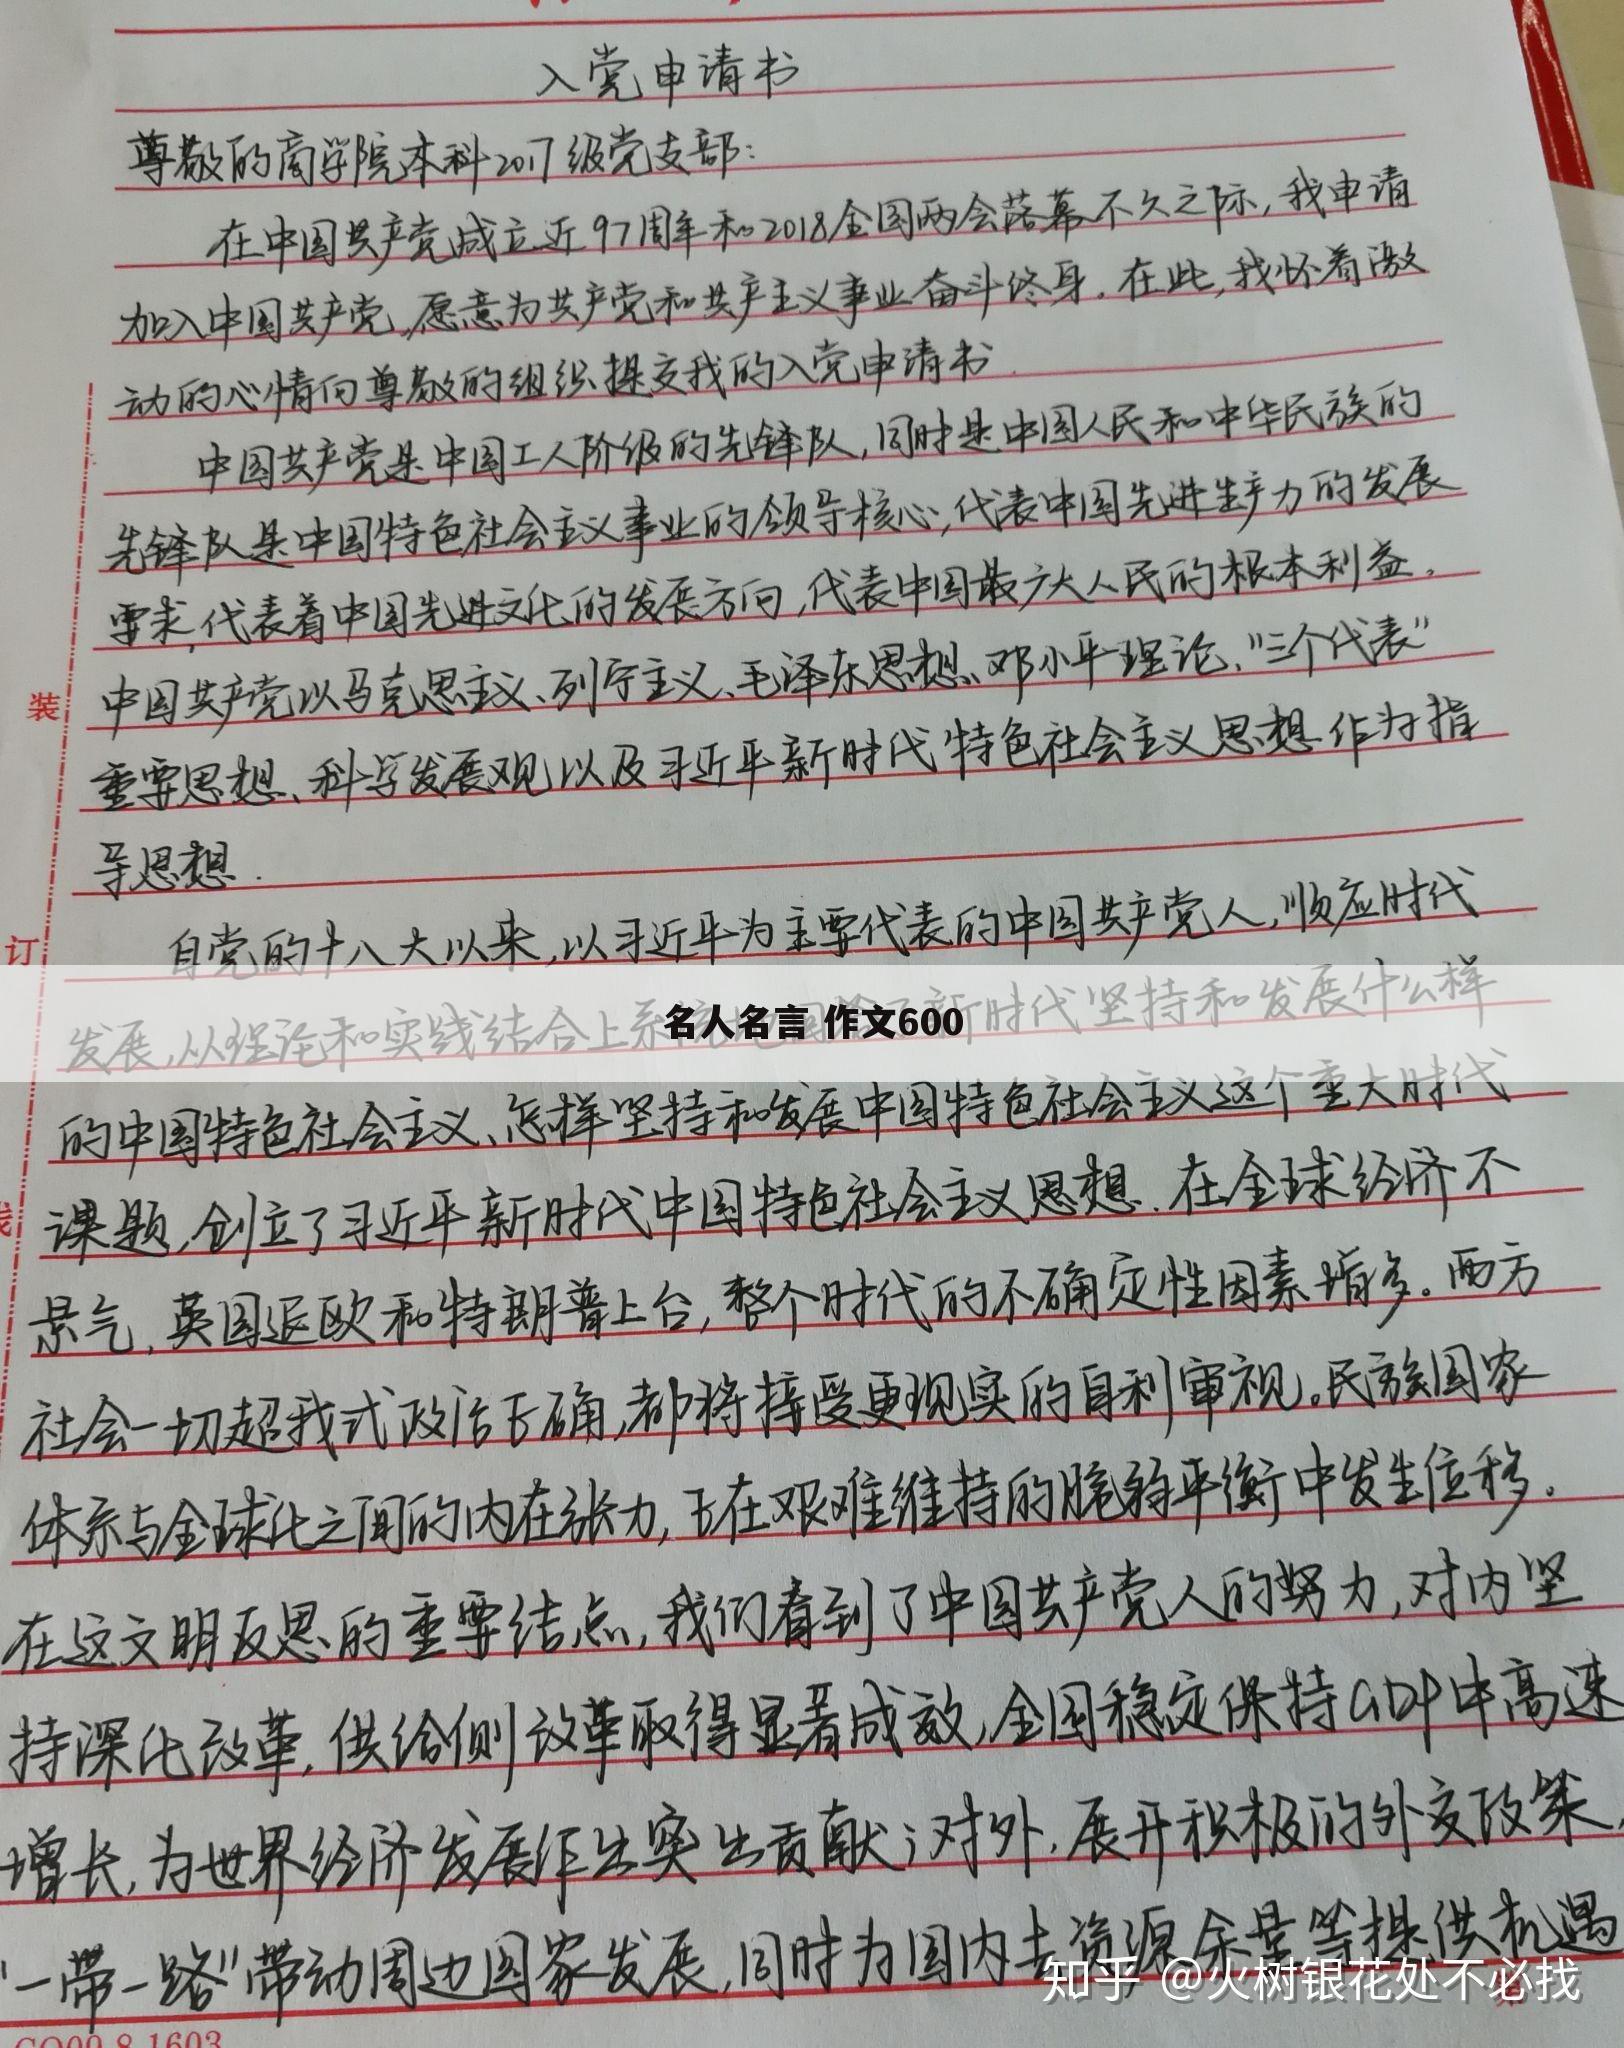 入党申请书
尊敬的商学院本科2017级党支部：
在中国共产党成立近97周年和2018全国两会落幕不久之际，我申请
加入中国共产党，愿意为共产党和共产主义事业奋斗终身。在此，我怀着激
动的心情向尊敬的组织提交我的入党申请书.
中国共产党是中国工人阶级的先锋队，同时是中国人民和中华民族的
先锋队是中国特色社会主义事业的领导核心，代表中国先进生产力的发展
要求，代表着中国先进文化的发展方向，代表中国最广大人民的根本利益。
中国共产党以马克思主义、列宁主义、毛泽东思想、邓小平理论、“三个代表”
装
重要思想、科学发展观以及习近平新时代特色社会主义思想作为指
导思想.
自党的十八大以来，以习近平为主要代表的中国共产党人，顺应时代
订
发展，从理论和实践结合上系 新时代坚持和发展什么样
名人名言 作文600
的中国特色社会主义、怎样坚持和发展中国特色社会主义这个重大时代
课题，创立了习近平新时代中国特色社会主义思想.在全球经济不
景气，英国退欧和特朗普上台，整个时代的不确定性因素增多。西方
社会一切超我式政治正确，都将接受更现实的自利审视。民族国家
体系与全球化之间的内在张力，正在艰难维持的脆弱平衡中发生位移。
在这文明反思的重要结点，我们看到了中国共产党人的努力，对内坚
持深化改革，供给侧改革取得显著成效，全国稳定保持GDP中高速
增长，为世界经济发展作出突出贡献；对外，展开积极的外交政策，
“一带一路”带动周边国家发展，同时为国内去 等提供机遇
知乎 @火树银花处不必找